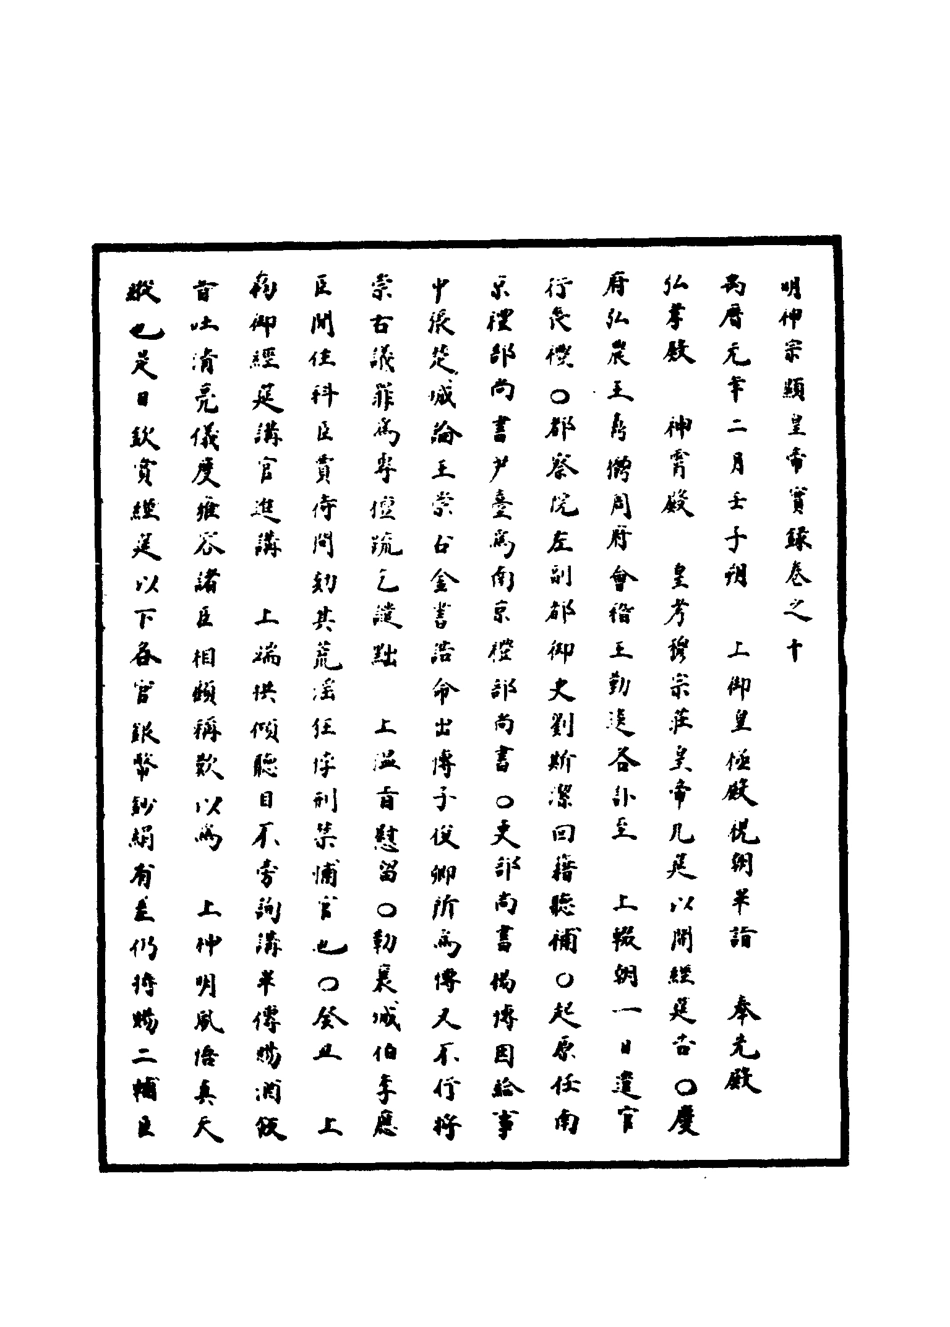 明神宗顯皇帝實錄卷之十
萬曆元年二月壬子朔　上御皇極殿視朝畢詣　奉先殿
弘孝殿　神霄殿　皇考穆宗莊皇帝几筵以開經筵告〇慶
府弘農王　周府會稽王勤　各訃至　上輟朝一日遣官
行喪禮〇都察院左副都御史劉斯潔回籍聽補〇起原任南
京禮部尚書尹臺為南京禮部尚書〇吏部尚書楊博因給事
中張楚城論王崇古金書誥命出博子俊卿所為博又不行將
崇古議罪為專擅疏乞譴黜　上溫旨慰留〇勒襄城伯李應
臣閒住科臣賈待問劾其荒淫狂悖刑禁捕官也〇癸丑　上
初御經筵講官進講　上端拱傾聽目不旁詢講畢傳賜酒飯
音吐清亮儀度雍容諸臣相顧稱歎以為　上神明夙悟真天
縱也是日欽賞經筵以下各官銀幣鈔絹有差仍特賜二輔臣